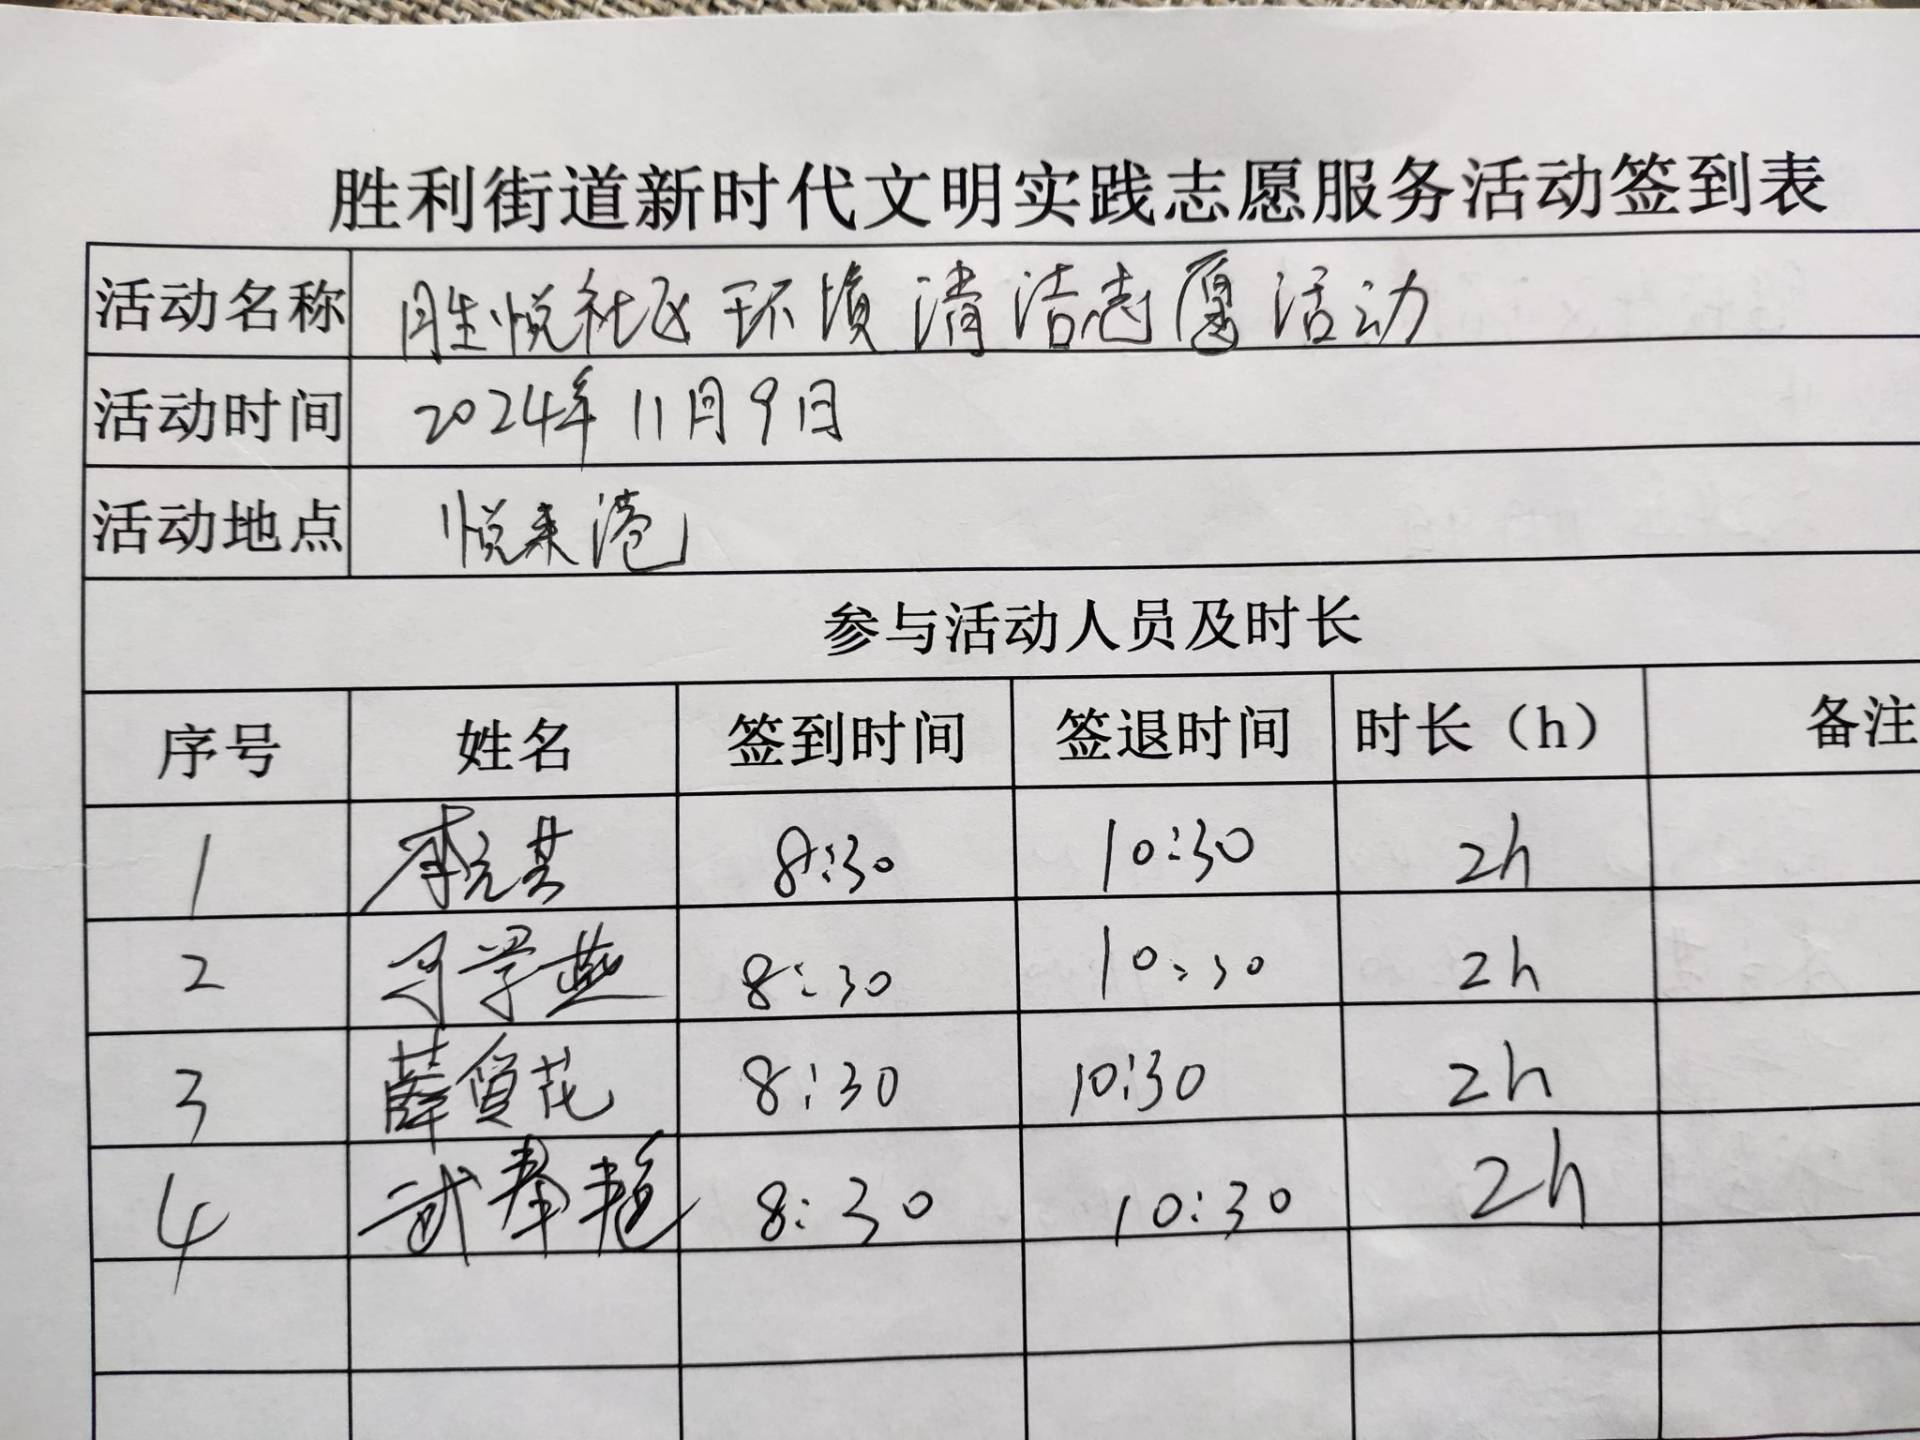 胜利街道新时代文明实践志愿服务活动签到表
活动名称 胜悦社区环境清洁志愿活动
活动时间 2024年11月9日
活动地点 悦来港
参与活动人员及时长
序号 姓名 签到时间 签退时间 时长（h） 备注
1 8:30 10:30 2h
2 学燕 8:30 10:30 2h
3 薛贤花 8:30 10:30 2h
4 武春艳 8:30 10:30 2h